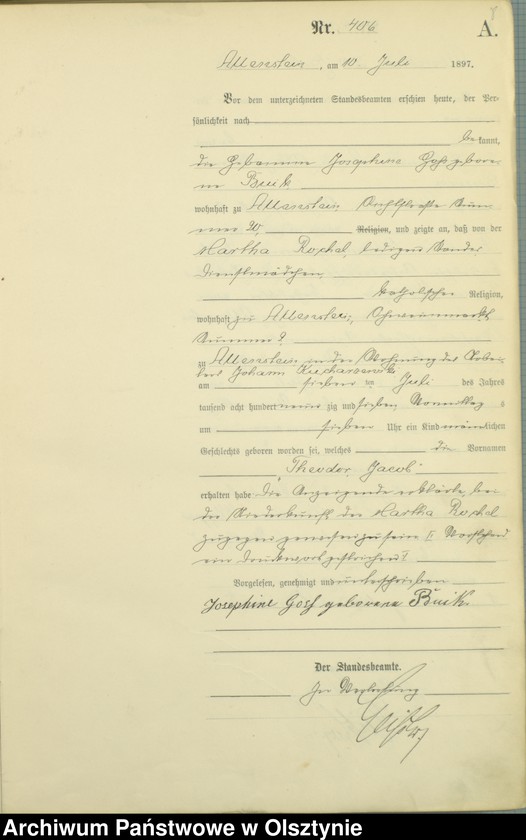 Nr. 406
A.
Allenstein, am 10 Juli 1897.
Vor dem unterzeichneten Standesbeamten erschien heute, der Per-
sönlichkeit nach
bekannt,
die Hebamme Josephine Goß gebore-
ne Buik
wohnhaft zu Allenstein
Religion, und zeigte an, daß von der
Martha Rochel, ledigen Standes
Dienstmädchen,
katholischer Religion,
wohnhaft zu Allenstein, Schweinemarkt
Nummer
zu Allenstein in der Wohnung des Arbei-
ters Johann
am sieben ten Juli des Jahres
tausend acht hundert neunzig und sieben Vormittags
um sieben Uhr ein Kind männlichen
Geschlechts geboren worden sei, welches die Vornamen
"Theodor Jacob"
erhalten habe. Die Anzeigende erklärte, bei
der Niederkunft der Martha Rochel
zugegen gewesen zu sein. Vorstehend
ein Druckwort gestrichen.
Vorgelesen, genehmigt und unterschrieben
Josephine Goß geborene Buik
Der Standesbeamte.
In Vertretung
Archiwum Państwowe w Olsztynie